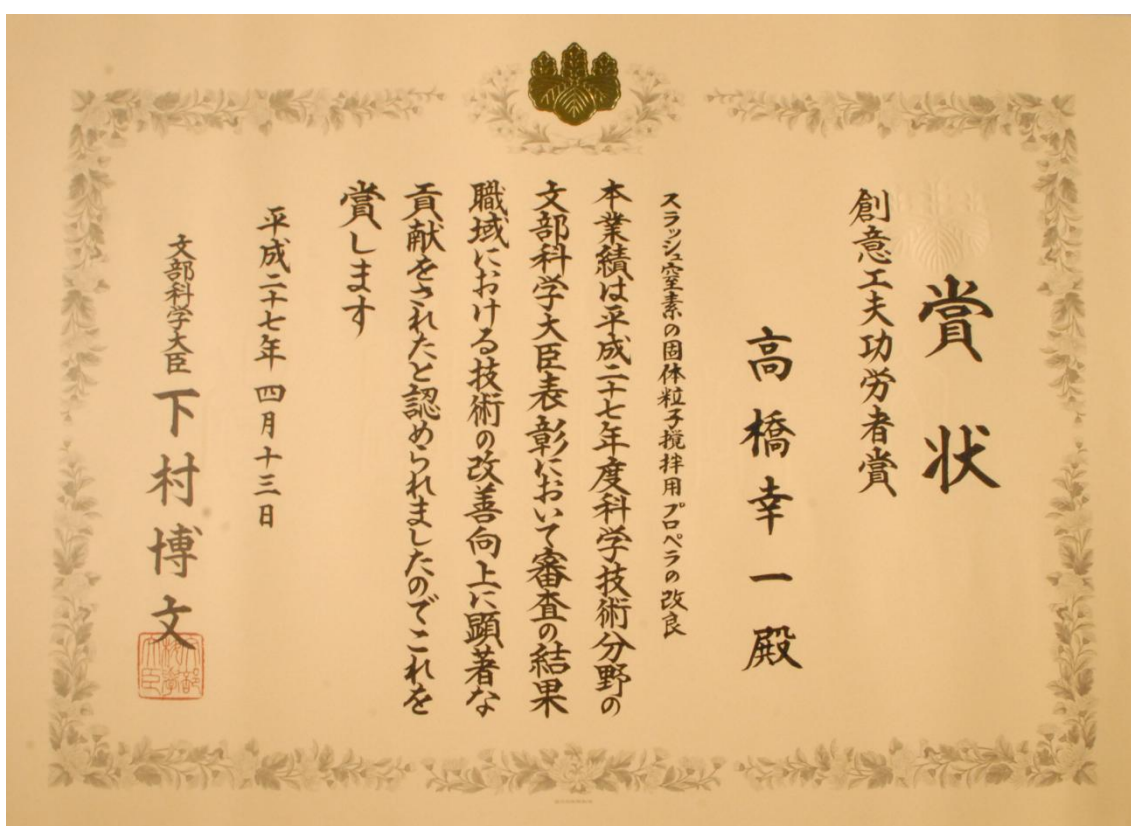 賞状
創意工夫功労者賞
高橋幸一殿
スラッシュ窒素の固体粒子撹拌用プロペラの改良
本業績は平成二十七年度科学技術分野の
文部科学大臣表彰において審査の結果
職域における技術の改善向上に顕著な
貢献をされたと認められましたのでこれを
賞します
平成二十七年四月十三日
文部科学大臣 下村博文